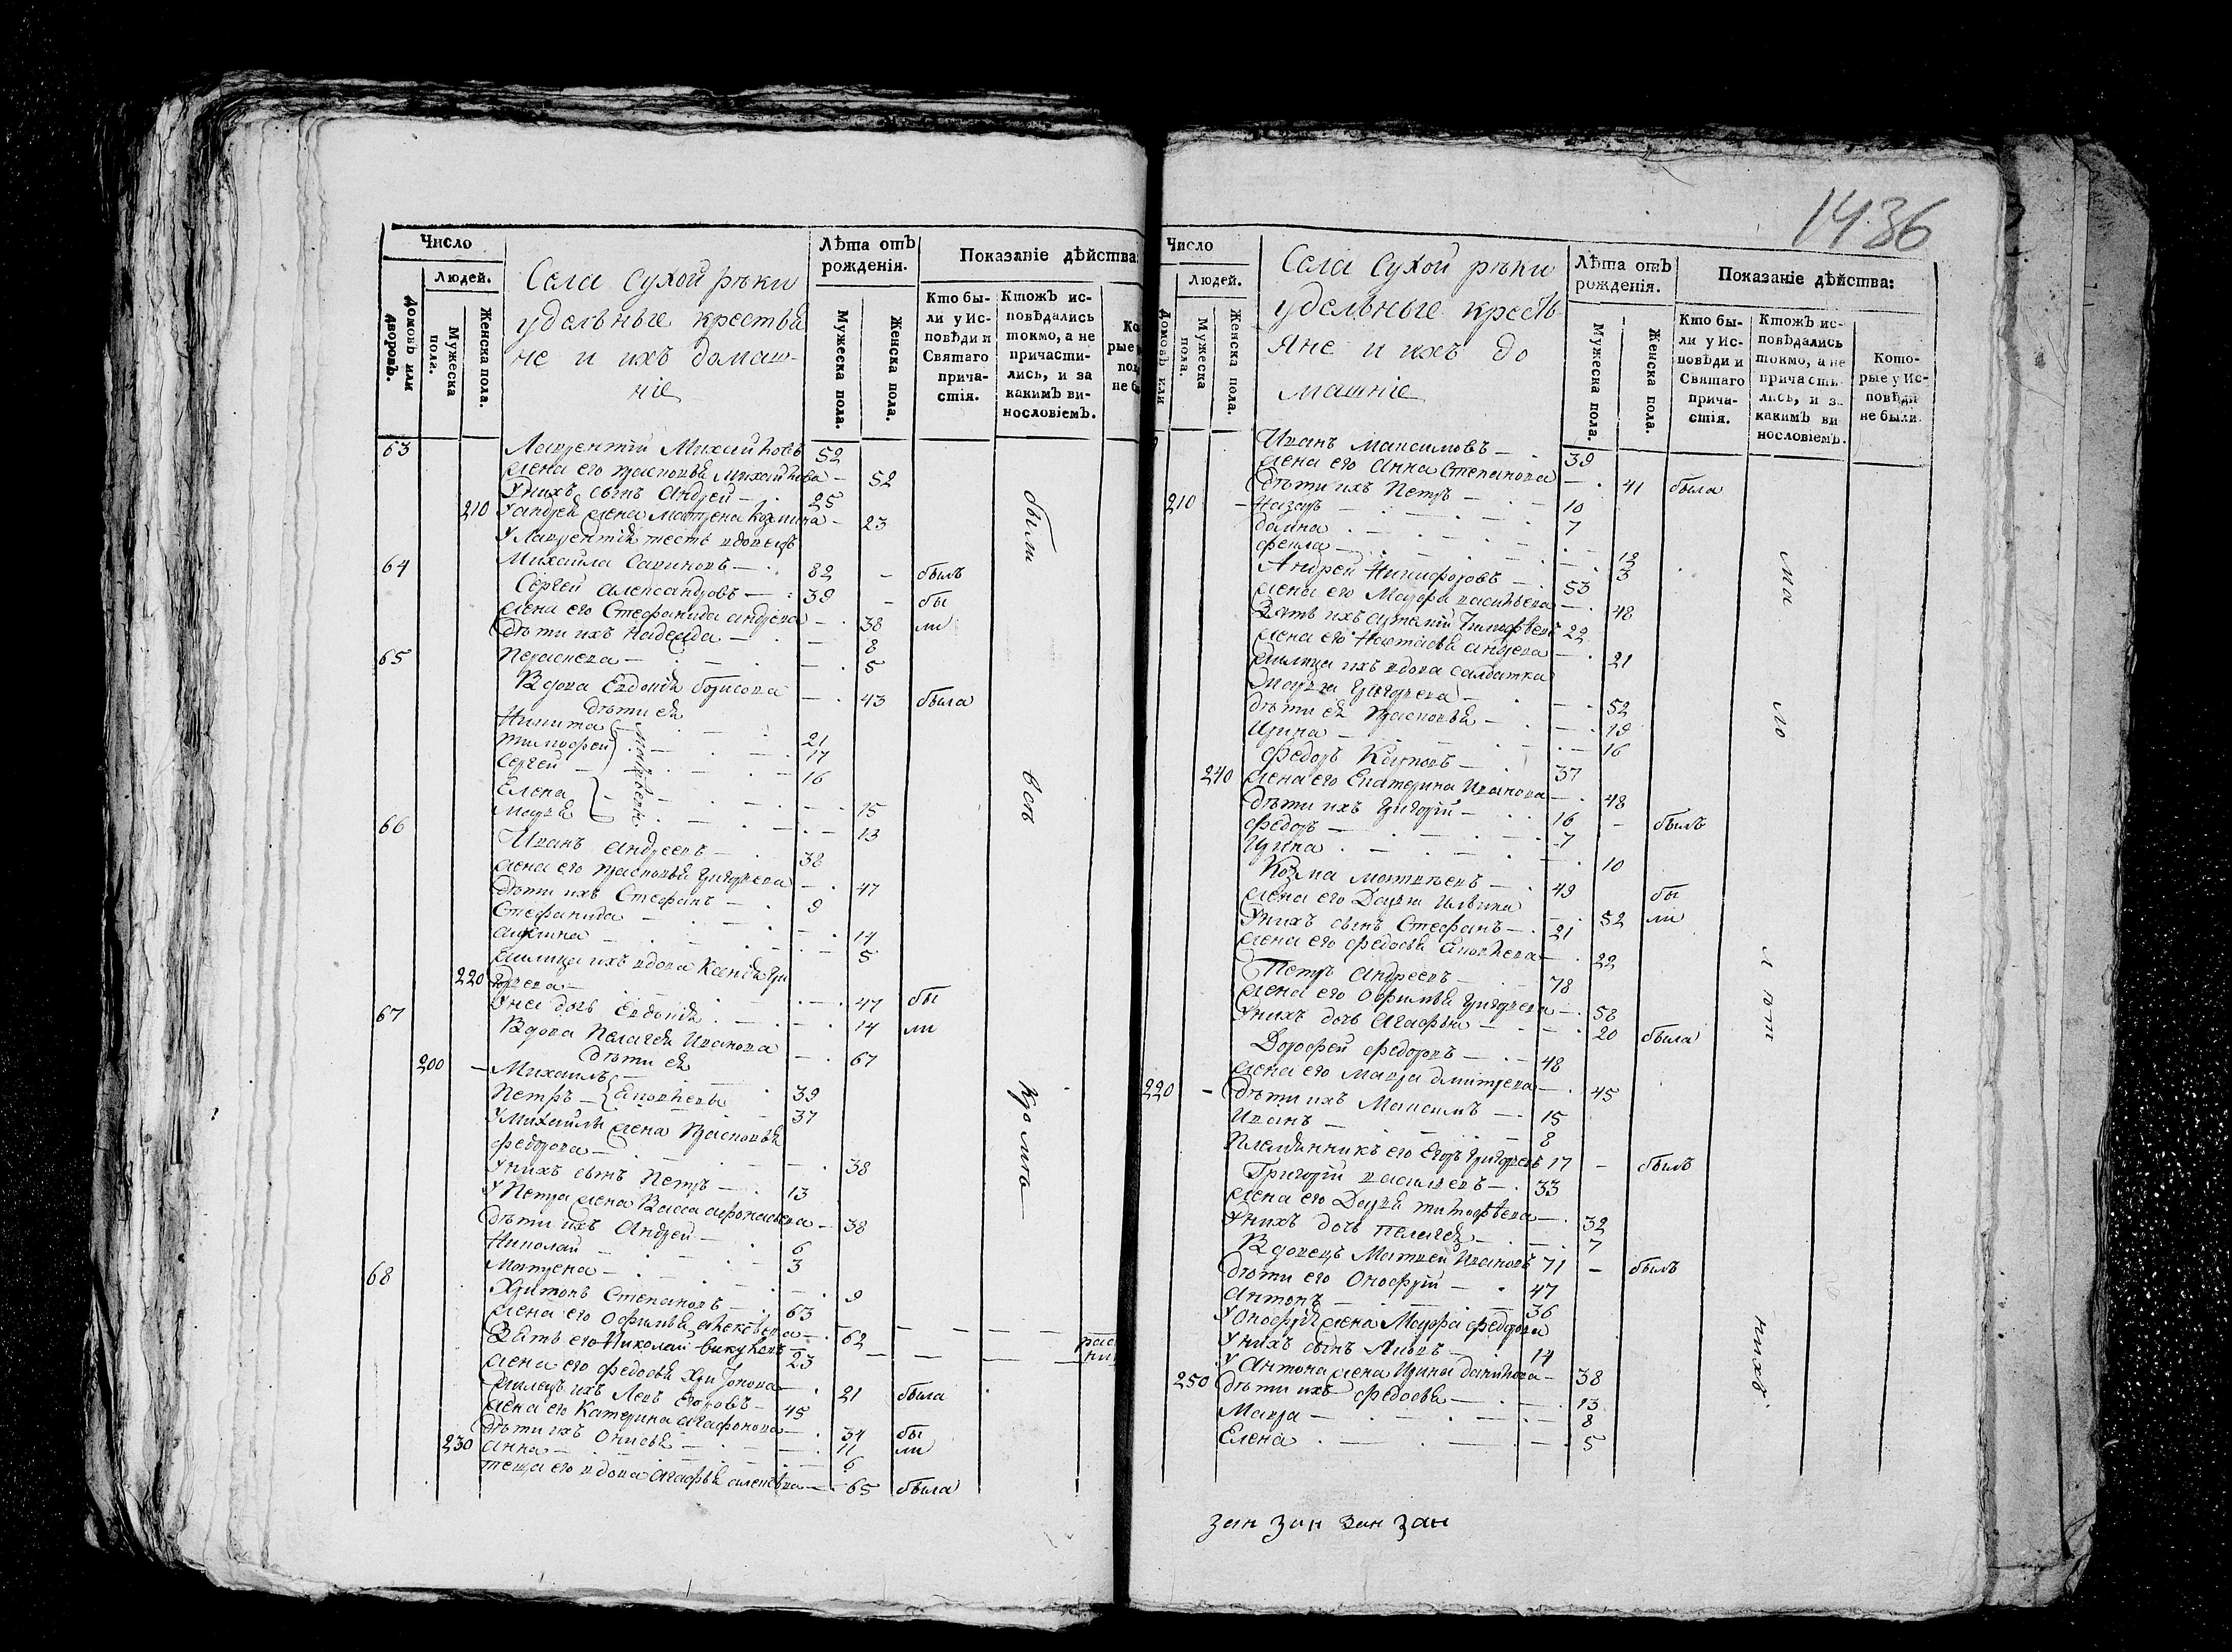 1436
Число
Людей.
Домовъ или дворовъ.
Мужеска пола.
Женска пола.
Села Сухой рѣки
удельные крестья
не и ихъ домаш-
ніе
Лѣта отъ рожденія.
Мужеска пола.
Женска пола.
Показаніе дѣйства:
Кто бы-
ли у Ис-
повѣди и
Святаго
прича-
стія.
Ктожъ ис-
повѣдались
токмо, а не
причасти-
лись, и за
какимъ ви-
нословіемъ.
63 Лаврентій Михайловъ 52
жена его Прасковья Михайлова 52
У нихъ сынъ Андрей 25
210 У андрея жена Матрена Козмина 23
У Лаврентія тесть вдовецъ
64 Михайла Савиновъ 82 былъ
Сергей александровъ 39 бы
жена его Стефанида андреева 38 ли
дѣти ихъ Надежда 8
65 Парасковва 5
Вдова Евдокія борисова 43 была
дѣти ея
Никита 21
тимофей 17
Сергей 16
Матвѣевы
Елена 15
Марѳа 13
66 Иванъ андреевъ 38
жена его Прасковья Григорьева 47
дѣти ихъ Стефанъ 9
Стефанида 14
акулина 5
жилица ихъ вдова Ксенія Гри
220 горьева 47 бы
У нея дочь Евдокія 14 ли
67 Вдова Пелагея Иванова 67
дѣти ея
200 Михаилъ 39
Петръ 37
У Михайлы жена Прасковья
федорова 38
У нихъ сынъ Петръ 13
У Петра жена Васса афонасьева 38
дѣти ихъ Андрей 6
Николай 3
Матрена 9
68 Харитонъ Степановъ 63
жена его Офимья алексѣева 62
Зять его Николай викуловъ 23
жена его федосья Харитонова 21 была
жилецъ ихъ Левъ Егоровъ 45
жена его Катерина агафонова 34 бы
дѣти ихъ Онисья 11 ли
230 анна 6
теща его вдова агафья алексѣева 65 была
были
всѣ
Кромѣ
Число
Людей.
Домовъ или
Мужеска пола.
Женска пола.
Села Сухой рѣки
удельные кресть
яне и ихъ до
машніе
Лѣта отъ рожденія.
Мужеска пола.
Женска пола.
Показаніе дѣйства:
Кто бы-
ли у Ис-
повѣди и
Святаго
прича-
стія.
Ктожъ ис-
повѣдались
токмо, а не
причасти-
лись, и за
какимъ ви
нословіемъ.
Кото-
рые у Ис-
повѣди
не были.
Иванъ Максимовъ 39
жена его анна Степанова 41 была
дѣти ихъ Петръ 10
210 Назаръ 7
домна 12
фекла 3
Андрей Никифоровъ 53
жена его Марфа васильева 48
Зять ихъ 22
жена его Настасья андреева 21
жилица ихъ вдова салдатка
Марѳа Григорьева 52
дѣти ея Прасковья 19
Ирина 16
федоръ Карповъ 37
240 жена его Екатерина Иванова 48
дѣти ихъ Григорій 16 былъ
федоръ 7
Ирина 10
Козма Матвѣевъ 49 бы
жена его Дарья Ильина 52 ли
У нихъ сынъ Стефанъ 21
жена его федосья 22
Петръ андреевъ 78
жена его Офимья Григорьева 58
У нихъ дочь Агафья 20 была
Дорофей федоровъ 48
жена его Мавра дмитрева 45
220 дѣти ихъ Максимъ 15
Иванъ 8
Племянникъ его Егоръ Григорьевъ 17 былъ
Григорій васильевъ 33
жена его Дарья тимофѣева 32
У нихъ дочь Пелагея 7
Вдовецъ Матвей Ивановъ 71 былъ
дѣти его Онофрій 47
антонъ 36
У Онофрія жена Марфа федорова
У нихъ сынъ Яковъ 14
У Антона жена Ирина данилова 38
250 дѣти ихъ федосья 13
Мавра 8
Елена 5
ма
ло
л
ѣт
нихъ
зан зан зан зан